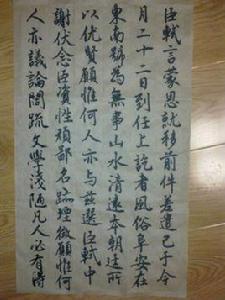 臣軾言蒙恩就移前件差遣已于今
月二十二日到任上訖者風俗阜安在
東南號為無事山水清遠本朝廷所
以優賢顧惟何人亦与茲選臣軾中
謝伏念臣資性頑鄙名跡堙微顧惟何
人亦議論闊疏文學淺陋凡人必有